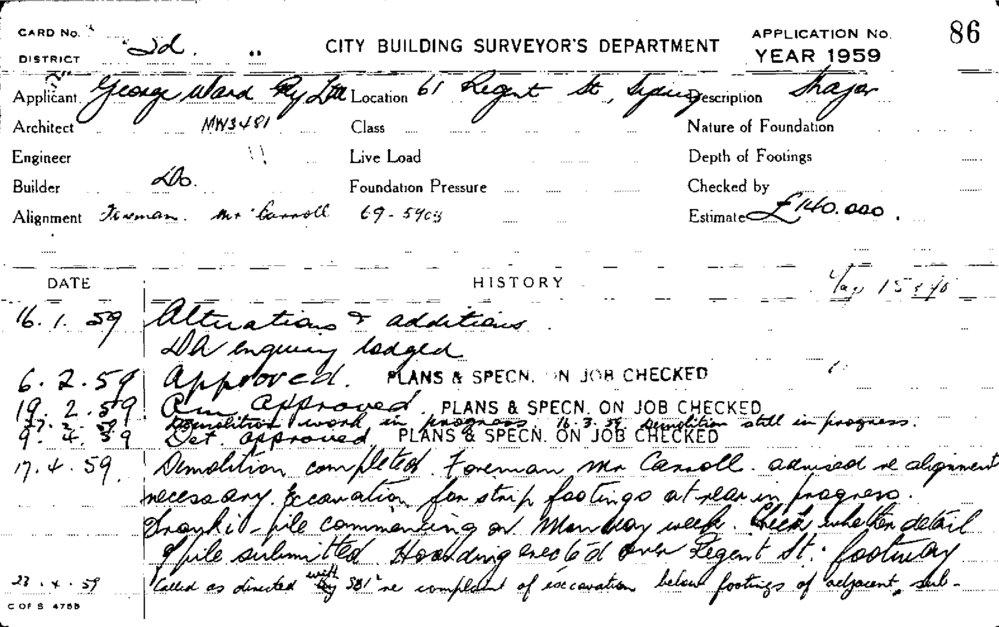 CARD No. 86
DISTRICT 2d. CITY BUILDING SURVEYOR'S DEPARTMENT APPLICATION No.
YEAR 1959
Applicant George Ward Pty Ltd Location 61 Regent St, Sydney Description
Architect MW3481 Class Nature of Foundation
Engineer " Live Load Depth of Footings
Builder Do. Foundation Pressure Checked by
Alignment Foreman. Mr Carroll 69-5908 Estimate £140.000.
DATE HISTORY
16.1.59 Alterations & additions
DA enquiry lodged
6.2.59 Approved. PLANS & SPECN. ON JOB CHECKED
19.2.59 Am approved. PLANS & SPECN. ON JOB CHECKED
Demolition work in progress. 16.3.59 Demolition still in progress.
9.4.59 Det. approved PLANS & SPECN. ON JOB CHECKED
17.4.59 Demolition completed. Foreman Mr Carroll. advised re alignment
necessary. Excavation for strip footings at rear in progress.
Franki-pile commencing on Monday week. Check whether detail
of pile submitted. Hoarding erected over Regent St. footway
23.4.59 Called as directed with SBI re complaint of excavation below footings of adjacent sub-
C OF S 475B